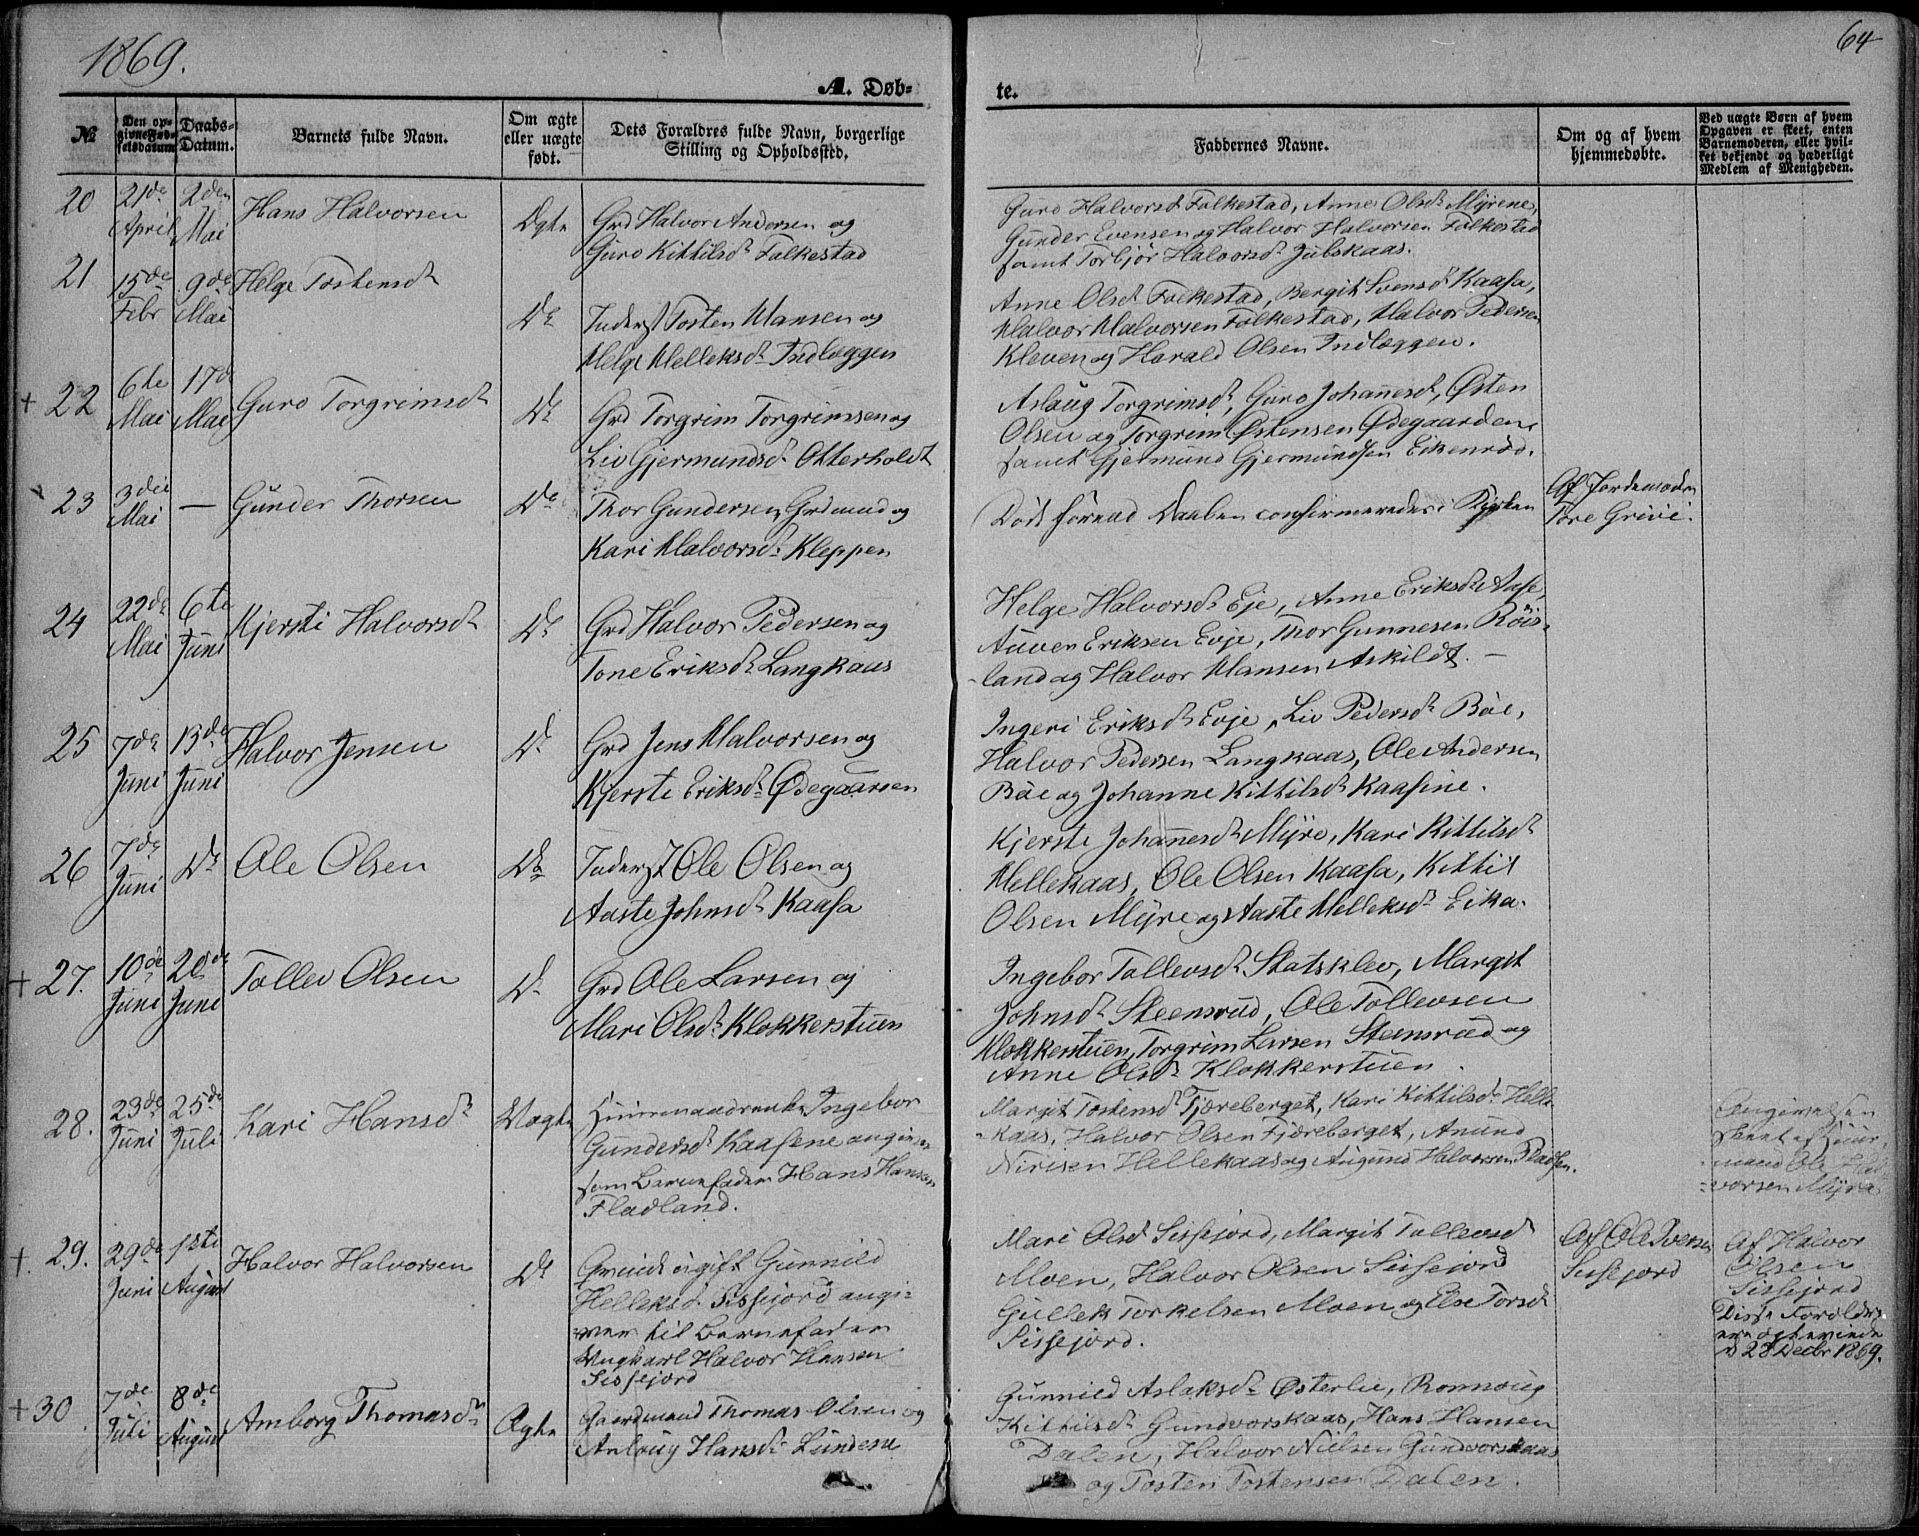 1869.
64
A. Døb-
te.
№
Den op-
givne Fød-
selsdatum
Daabs-
Datum.
Barnets fulde Navn.
Om ægte
eller uægte
født.
Dets Forældres fulde Navn, borgerlige
Stilling og Opholdssted.
Faddernes Navne.
Om og af hvem
hjemmedøbte.
Ved uægte Børn af hvem
Opgaven er skeet, enten
Barnemoderen, eller hvil-
ket bekjendt og hæderligt
Medlem af Menigheden.
20
21de April
2den Mai
Hans Halvorsen
Ægte
Grd Halvor Andersen og
Guro Kittilsd. Folkestad
Guro Halvorsd Folkestad, Anne Olsd. Myrene,
Gunder Evensen og Halvor Halvorsen Folkestad
samt Torbjør Halvorsd. Jubskaas.
21
15de Febr
9de Mai
Helge Tostensd
Do
Inderst Tosten Hansen og
Helge Helleksd. Indlæggen
Anne Olsd. Folkestad, Bergit Svensd Kaasa,
Halvor Halvorsen Folkestad, Halvor Pedersen
Kleven og Harald Olsen Indlæggen.
+ 22
6te Mai
17de Mai
Guro Torgrimsd
Do
Grd Torgrim Torgrimsen og
Liv Gjermundsd. Otterholdt
Aslaug Torgrimsd, Guro Johannesd, Østen
Olsen og Torgrim Østensen Ødegaarden,
samt Gjermund Gjermundsen Eikenrød.
23
3die Mai
—
Gunder Thorsen
Do
Thor Gundersen, Grdmand og
Kari Halvorsd. Kleppen
Død forend Daaben confirmeredes i Kirken
Af Jordemoder
Tore Grivi.
24
22de Mai
6te Juni
Kjersti Halvorsd
Do
Grd Halvor Pedersen og
Tone Eriksd. Langkaas
Helge Halvorsd. Eje, Anne Eriksd. Aase,
Auven Eriksen Evje, Thor Gunnesen Röis-
land og Halvor Hansen Askildt. —
25
7de Juni
13de Juni
Halvor Jensen
Do
Grd Jens Halvorsen og
Kjerste Eriksd. Ødegaarsen
Ingeri Eriksd. Evje, Liv Pedersd. Bøe,
Halvor Pedersen Langkaas, Ole Andersen
Bøe og Johanne Kittilsd. Kaasine.
26
7de Juni
Do
Ole Olsen
Do
Inderst Ole Olsen og
Aaste Johnsd. Kaasa
Kjerste Johannesd. Myre, Kari Kittilsd.
Hellekaas, Ole Olsen Kaasa, Kittil
Olsen Myre og Aaste Helleksd. Eika.
+ 27.
10de Juni
20de Juni
Tollev Olsen
Do
Grd Ole Larsen og
Mari Olsd. Klokkerstuen
Ingebor Tollevsd. Statsklev, Margit
Johnsd. Steensrud, Ole Tollevsen
Klokkerstuen, Torgrim Larsen Stensrud og
Anne Olsd. Klokkerstuen.
28.
23de Juni
25de Juli
Kari Hansd.
Uægte
Huusmandsenke Ingebor
Gundersd. Kaasene angiver
som Barnefader Hans Hansen
Fladland.
Margit Tostensd. Fjæreberget, Kari Kittilsd. Helle-
kaas, Halvor Olsen Fjæreberget, Anund
Nirisen Hellekaas og Augund Halvorsen Pladsen.
Angivelsen
skeet af Huus-
mand Ole Hal-
vorsen Myra
+ 29.
29de Juni
1ste August
Halvor Halvorsen
Do
Qvinde ugift Gunnild
Helleksd. Sissejord angi-
ver til Barnefader
Ungkarl Halvor Hansen
Sissejord
Mari Olsd Sissejord, Margit Tollevsd
Moen, Halvor Olsen Sissejord
Gullek Torkelsen Moen og Else Torsd.
Sissejord.
Af Ole Iversen
Sissejord
Af Halvor
Olsen
Sissejord
Disse Forældre
ere ægteviede
d 28 Decbr 1869.
+ 30.
7de Juli
8de August
Amborg Thomasd.
Ægte
Gaardmand Thomas Olsen og
Anlaug Hansd. Lundene
Gunnild Aslaksd. Østerlie, Ronnoug
Kittilsd. Gundvorskaas, Hans Hansen
Dalen, Halvor Nielsen Gundvorskaas
og Tosten Tostensen Dalen.